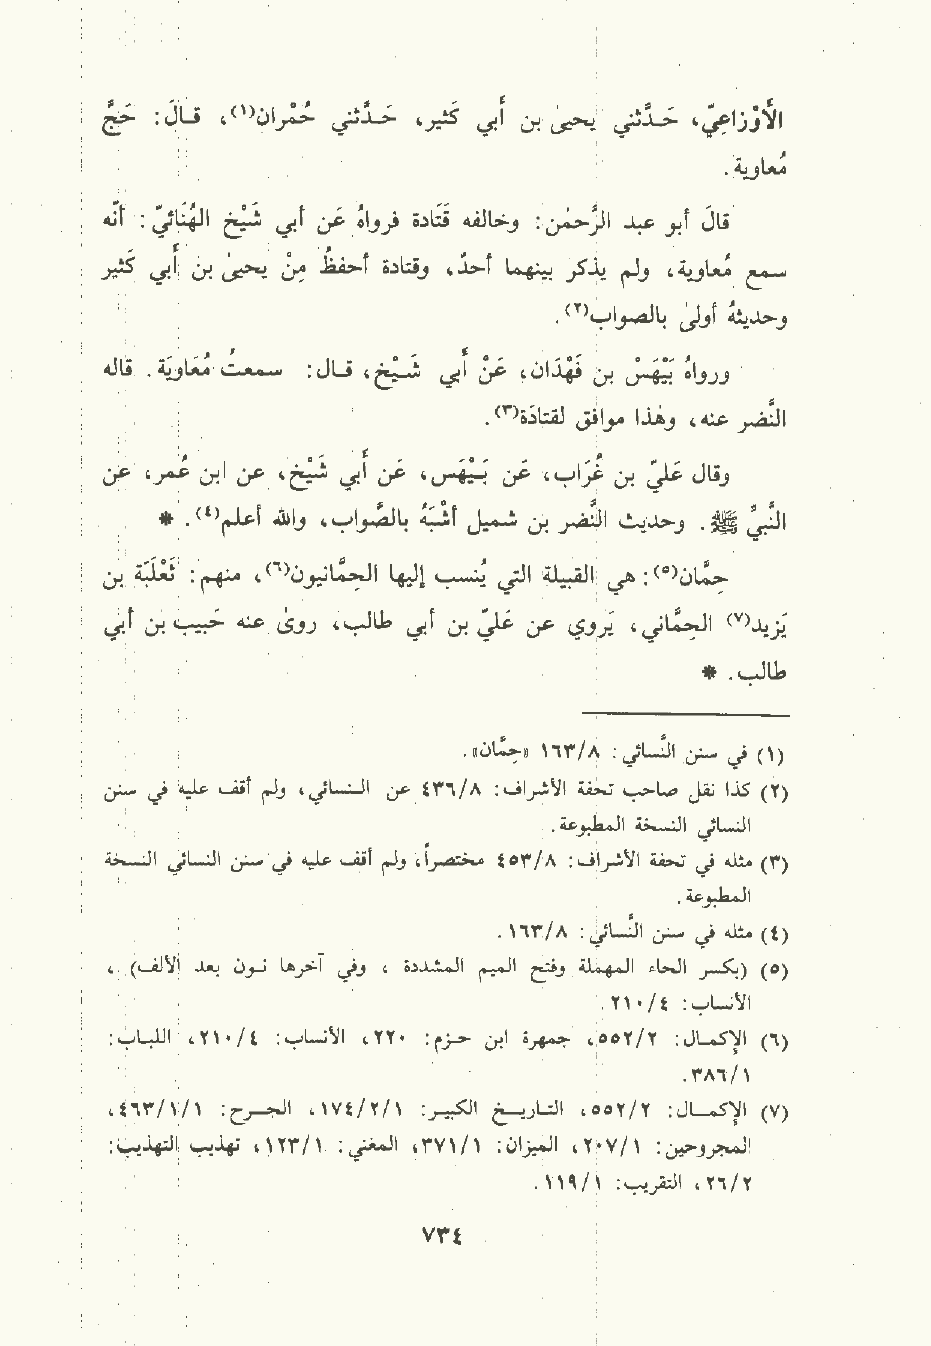 الأَوْزاعِيّ، حَدَّثني يحيىٰ بن أَبي كَثير، حَدَّثني حُمْران(١)، قـالَ: حَجَّ
مُعاوية.
قالَ أبو عبد الرَّحمٰن: وخالفه قَتَادة فرواهُ عَن أبي شَيْخ الهُنَائيّ: أنّه
سمع مُعاوية، ولم يذكر بينهما أحدٌ، وقتادة أحفظُ مِنْ يحيىٰ بن أَبي كَثير
وحديثهُ أولىٰ بالصواب(٢).
ورواهُ بَيْهَسْ بن فَهْدَان، عَنْ أَبي شَـيْخ، قـال: سمعتُ مُعَاويَة. قاله
النَّضر عنه، وهٰذا موافق لقتادَة(٣).
وقال عَليّ بن غُرَاب، عَن بَـيْهَس، عَن أَبي شَيْخ، عن ابن عُمر، عن
النَّبيِّ ﷺ. وحديث النَّضر بن شميل أشْبَهُ بالصَّواب، والله أعلم(٤). *
حِمَّان(٥): هي القبيلة التي يُنسب إليها الحِمَّانيون(٦)، منهم: ثَعْلَبَة بن
يَزيد(٧) الحِمَّاني، يَروي عن عَليّ بن أبي طالب، روىٰ عنه حَبيب بن أبي
طالب. *
(١) في سنن النَّسائي: ١٦٣/٨ «حِمَّان».
(٢) كذا نقل صاحب تحفة الأشراف: ٤٣٦/٨ عن النسـائي، ولم أقف عليه في سنن
النسائي النسخة المطبوعة.
(٣) مثله في تحفة الأشراف: ٤٥٣/٨ مختصراً، ولم أقف عليه في سنن النسائي النسخة
المطبوعة.
(٤) مثله في سنن النَّسائي: ١٦٣/٨.
(٥) (بكسر الحاء المهملة وفتح الميم المشددة ، وفي آخرها نـون بعد الألف) ،
الأنساب: ٢١٠/٤.
(٦) الإكمـال: ٥٥٢/٢، جمهرة ابن حـزم: ٢٢٠، الأنساب: ٢١٠/٤، اللبـاب:
٣٨٦/١.
(٧) الإكمـال: ٥٥٢/٢، التـاريـخ الكبيـر: ١٧٤/٢/١، الجـرح: ٤٦٣/١/١،
المجروحين: ٢٠٧/١، الميزان: ٣٧١/١، المغني: ١٢٣/١، تهذيب التهذيب:
٢٦/٢، التقريب: ١١٩/١.
٧٣٤